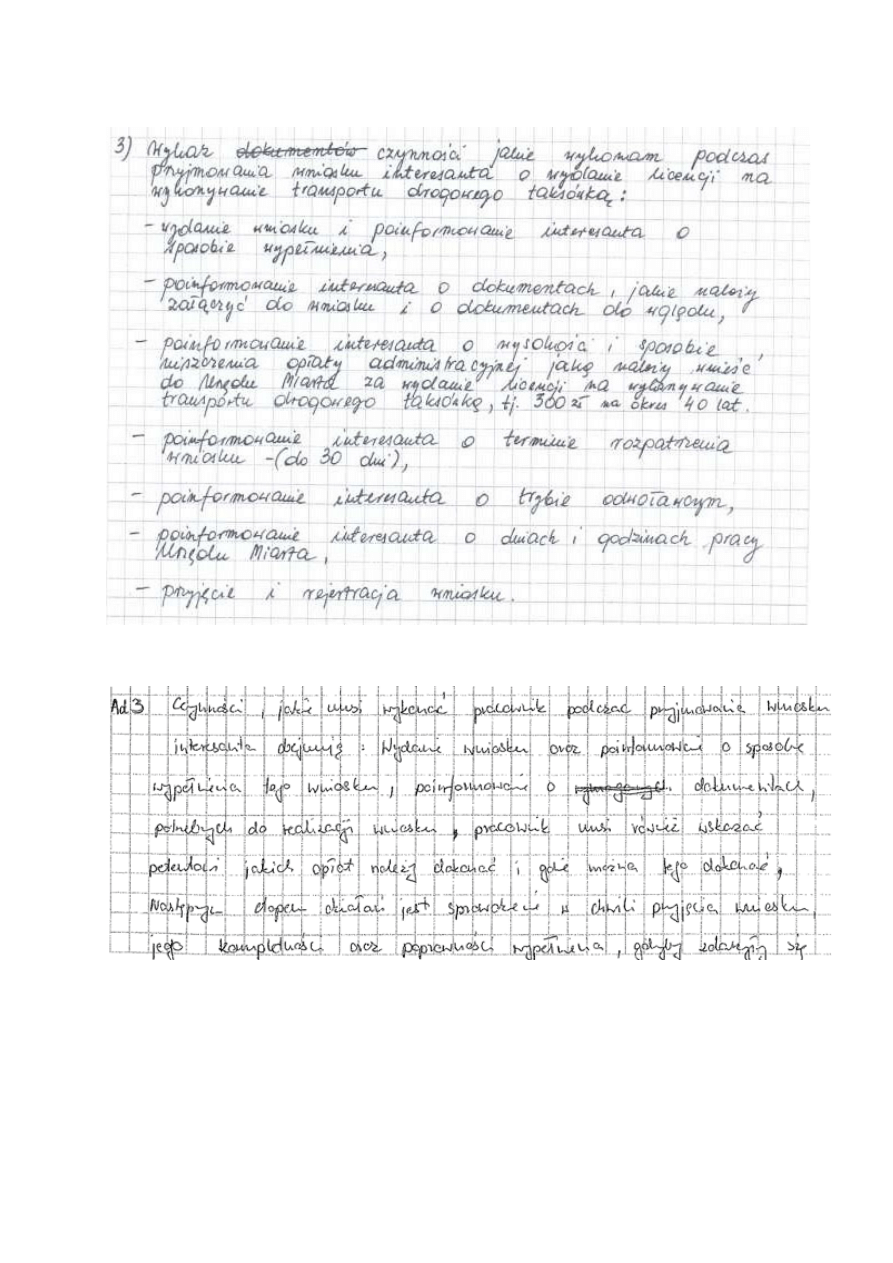 3) Wykaz dokumentów czynności jakie wykonam podczas
przyjmowania wniosku interesanta o wydanie licencji na
wykonywanie transportu drogowego taksówką:
- wydanie wniosku i poinformowanie interesanta o
sposobie wypełnienia,
- poinformowanie interesanta o dokumentach, jakie należy
załączyć do wniosku i o dokumentach do wglądu,
- poinformowanie interesanta o wysokości i sposobie
uiszczenia opłaty administracyjnej jaką należy wnieść
do Urzędu Miasta za wydanie licencji na wykonywanie
transportu drogowego taksówką, tj. 300 zł na okres 40 lat.
- poinformowanie interesanta o terminie rozpatrzenia
wniosku -(do 30 dni),
- poinformowanie interesanta o trybie odwoławczym,
- poinformowanie interesanta o dniach i godzinach pracy
Urzędu Miasta,
- przyjęcie i rejestracja wniosku.
Ad 3 Czynności, jakie musi wykonać pracownik podczas przyjmowania wniosku
interesanta obejmują: Wydanie wniosku oraz poinformowanie o sposobie
wypełnienia tego wniosku, poinformowanie o wymaganych dokumentach,
potrzebnych do realizacji wniosku, pracownik musi również wskazać
petentowi jakich opłat należy dokonać i gdzie można tego dokonać,
Następnym etapem działań jest sprawdzenie w chwili przyjęcia wniosku,
jego kompletności oraz poprawności wypełnienia, gdyby zdarzyły się